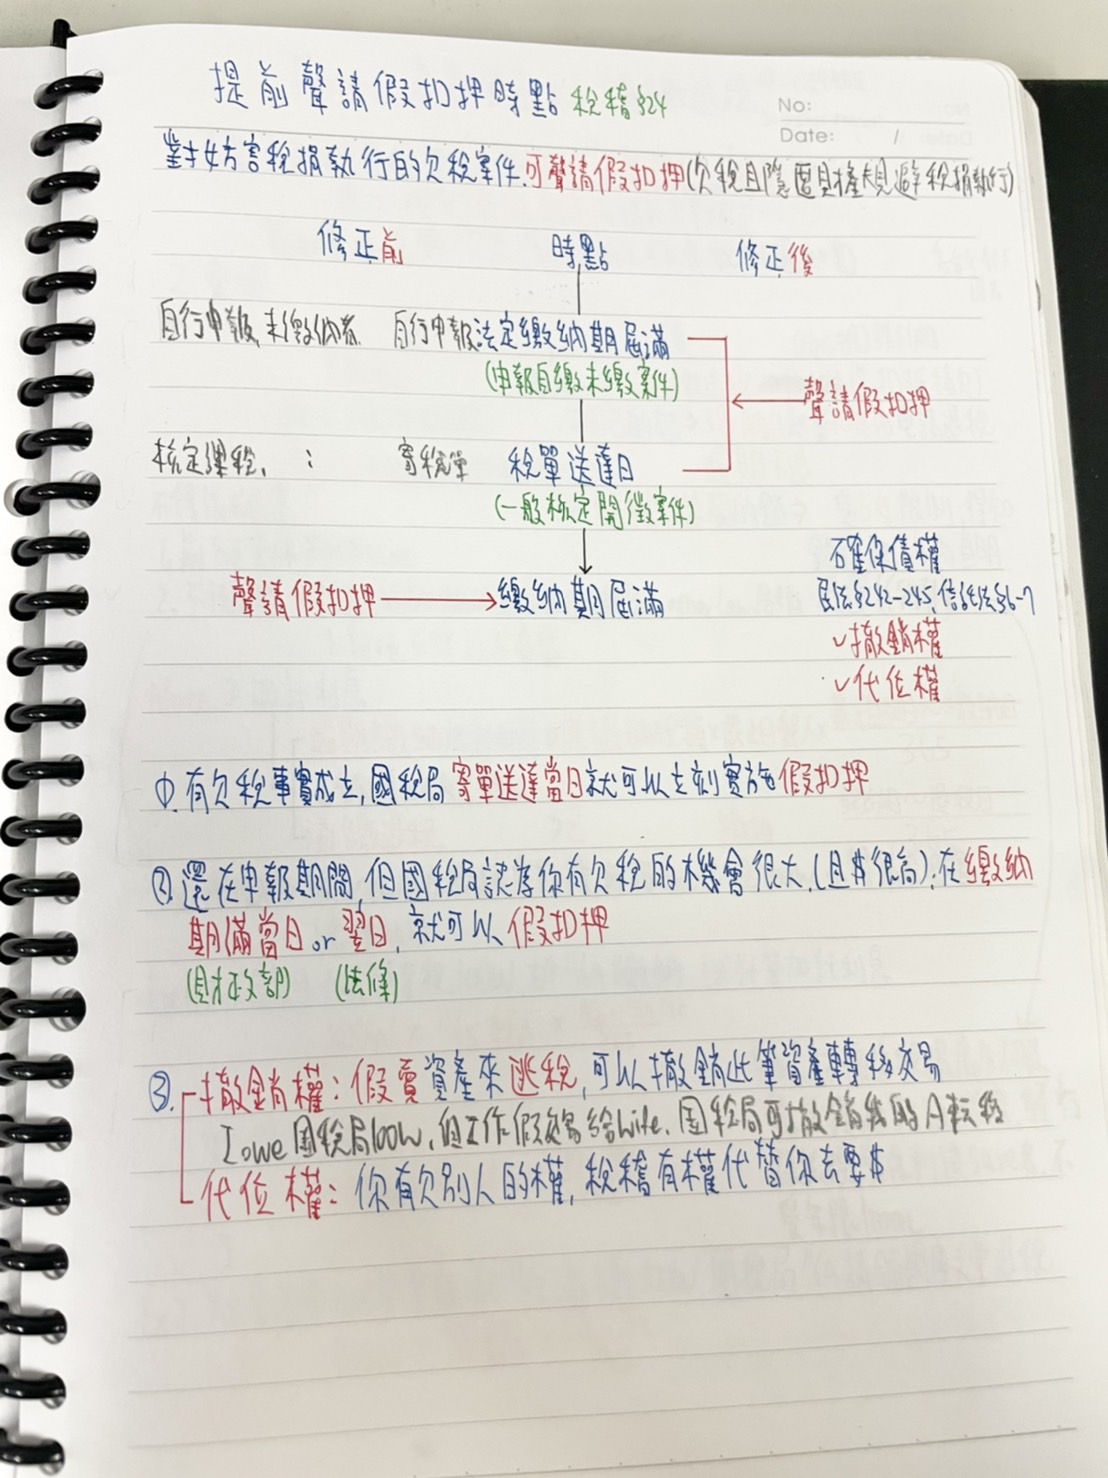 提前聲請假扣押時點 稅稽§24
No:
Date: /
對妨害稅捐執行的欠稅案件,可聲請假扣押(欠稅且隱匿財產規避稅捐執行)
修正前 時點 修正後
自行申報,未繳納者. 自行申報法定繳納期屆滿
(申報自繳未繳案件)
聲請假扣押
核定課稅. : 寄稅單 稅單送達日
(一般核定開徵案件)
確保債權
聲請假扣押 繳納期屆滿 民法§242-245,信託法§6-7
✓撤銷權
✓代位權
①.有欠稅事實成立,國稅局寄單送達當日就可以立刻實施假扣押
②還在申報期間,但國稅局認為你有欠稅的機會很大,(且$很高),在繳納
期滿當日or翌日,就可以假扣押
(財政部) (法條)
③.撤銷權:假賣資產來逃稅,可以撤銷此筆資產轉移交易
I owe 國稅局100w,但工作假給wife.國稅局可撤銷我的A轉移
代位權:你有欠別人的權,稅稽有權代替你去要$